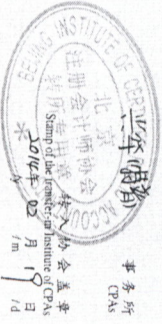 事务所
CPAs
BEIJING INSTITUTE OF CERTIFIED
ACCOUNTANTS
北京
注册会计师协会
转所专用章
转入协会盖章
Stamp of the Transfer-in Institute of CPAs
2014年 02月 19日
/y /m /d